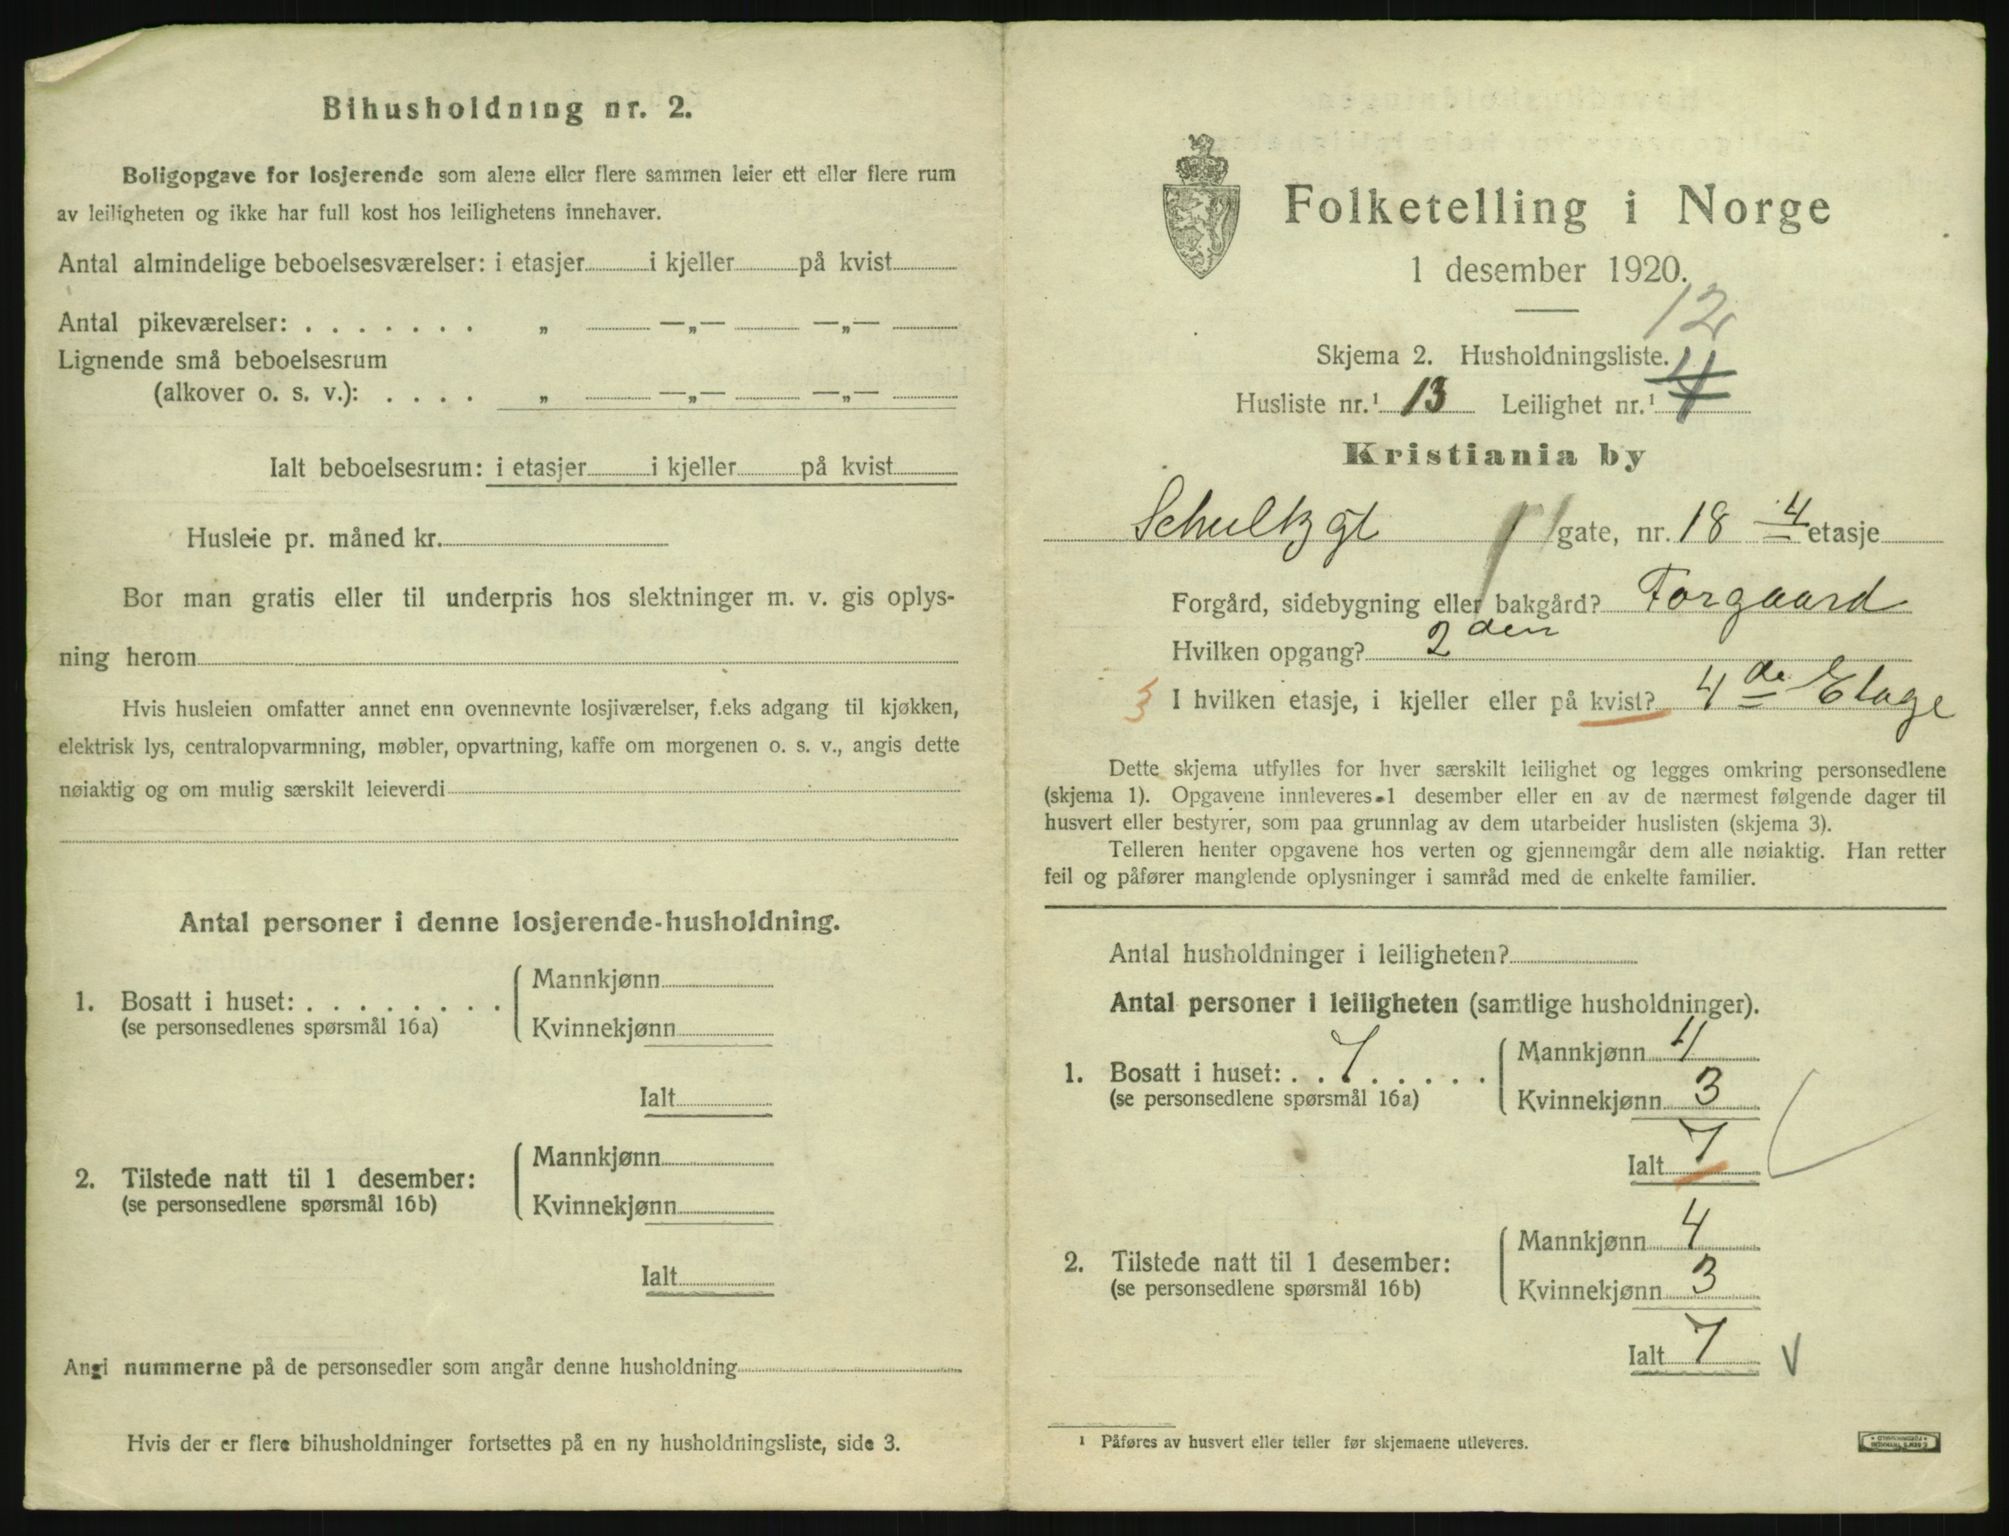 Bihusholdning nr. 2.
Boligopgave for losjerende som alene eller flere sammen leier ett eller flere rum
av leiligheten og ikke har full kost hos leilighetens innehaver.
Antal almindelige beboelsesværelser: i etasjer i kjeller på kvist
Antal pikeværelser: . . . . . . . „ —„— —„—
Lignende små beboelsesrum
(alkover o. s. v.): . . . . „ —„— —„—
Ialt beboelsesrum: i etasjer i kjeller på kvist
Husleie pr. måned kr.
Bor man gratis eller til underpris hos slektninger m. v. gis oplys-
ning herom
Hvis husleien omfatter annet enn ovennevnte losjiværelser, f.eks adgang til kjøkken,
elektrisk lys, centralopvarmning, møbler, opvartning, kaffe om morgenen o. s. v., angis dette
nøiaktig og om mulig særskilt leieverdi
Antal personer i denne losjerende-husholdning.
1. Bosatt i huset: . . . . . . . .
(se personsedlenes spørsmål 16a)
Mannkjønn
Kvinnekjønn
Ialt
2. Tilstede natt til 1 desember:
(se personsedlene spørsmål 16b)
Mannkjønn
Kvinnekjønn
Ialt
Angi nummerne på de personsedler som angår denne husholdning
Hvis der er flere bihusholdninger fortsettes på en ny husholdningsliste, side 3.
Folketelling i Norge
1 desember 1920.
12
Skjema 2. Husholdningsliste.
Husliste nr.¹ 13 Leilighet nr.¹
Kristiania by
gate, nr. 18 4 etasje
Forgård, sidebygning eller bakgård? Forgaard
Hvilken opgang? 2den
I hvilken etasje, i kjeller eller på kvist? 4de Etage
Dette skjema utfylles for hver særskilt leilighet og legges omkring personsedlene
(skjema 1). Opgavene innleveres 1 desember eller en av de nærmest følgende dager til
husvert eller bestyrer, som paa grunnlag av dem utarbeider huslisten (skjema 3).
Telleren henter opgavene hos verten og gjennemgår dem alle nøiaktig. Han retter
feil og påfører manglende oplysninger i samråd med de enkelte familier.
Antal husholdninger i leiligheten?
Antal personer i leiligheten (samtlige husholdninger).
1. Bosatt i huset: . . 7 . . . . .
(se personsedlene spørsmål 16a)
Mannkjønn 4
Kvinnekjønn 3
Ialt 7
2. Tilstede natt til 1 desember:
(se personsedlene spørsmål 16b)
Mannkjønn 4
Kvinnekjønn 3
Ialt 7
¹ Påføres av husvert eller teller før skjemaene utleveres.